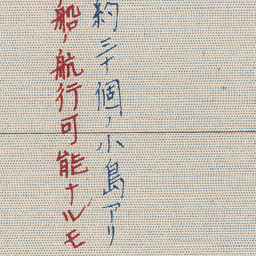 約三十個ノ小島アリ
船ノ航行可能ナルモ